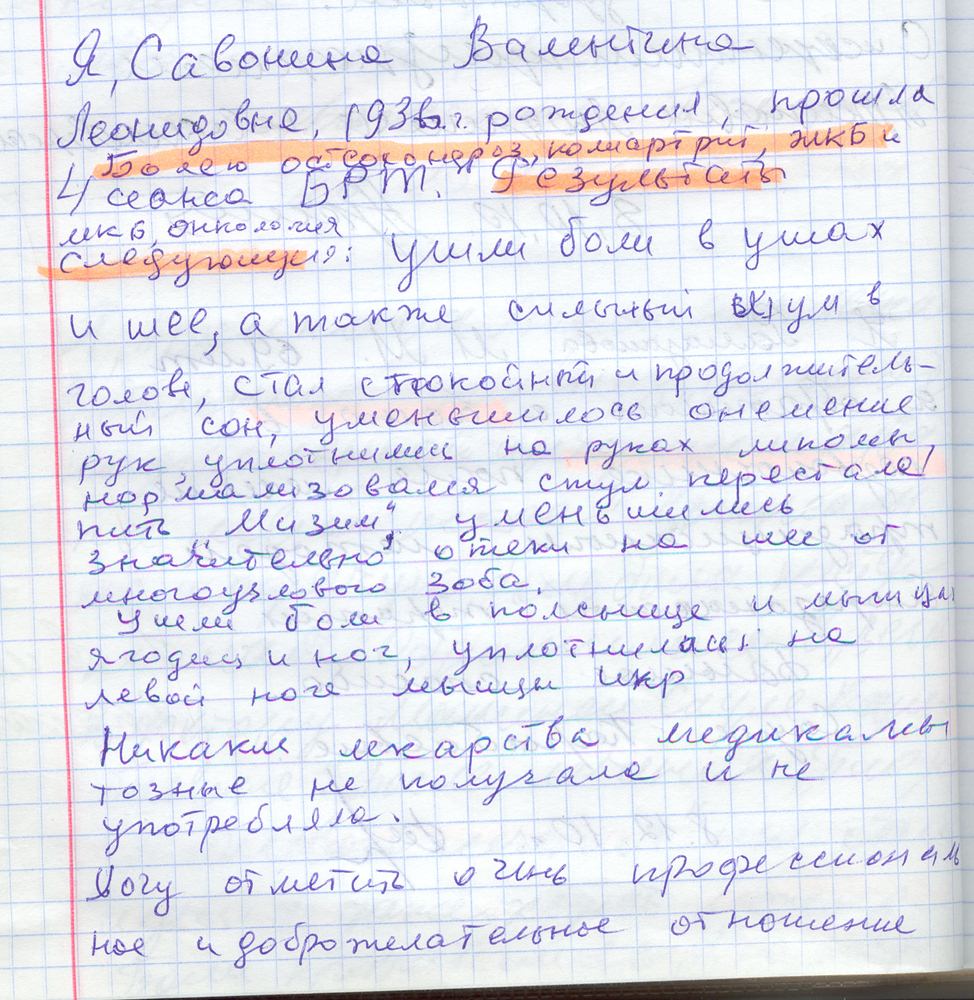 Я, Савонина Валентина
Леонидовна, 1936г. рождения, прошла
Болею остеохондроз, полиартрит, ЖКБ и
4 сеанса БРТ. Результаты
МКБ, онкология
следующие: ушли боли в ушах
и шее, а также сильный шум в
голове, стал спокойный и продолжитель-
ный сон, уменьшилось онемение
рук, уплотнились на руках липомы,
нормализовался стул, перестала
пить "Мизим", уменьшились
значительно отеки на шее от
многоузлового зоба.
Ушли боли в пояснице и мышцы
ягодиц и ног, уплотнилась на
левой ноге мышцы икр
Никакие лекарства медикамен
тозные не получала и не
употребляла.
Могу отметить очень профессиональ
ное и доброжелательное отношение